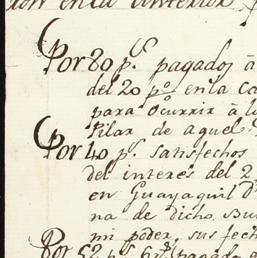 con en la anterior
Por 80 p.s pagados à
del 20 p.o en la Ca
para ocurrir à l
Pilar de aquel
Por 40 p.s satisfechos
del interes del 2
en Guayaquil D
na de dicho Bu
mi poder, sus fech
Por 52 p.s 6 r.s pagado a